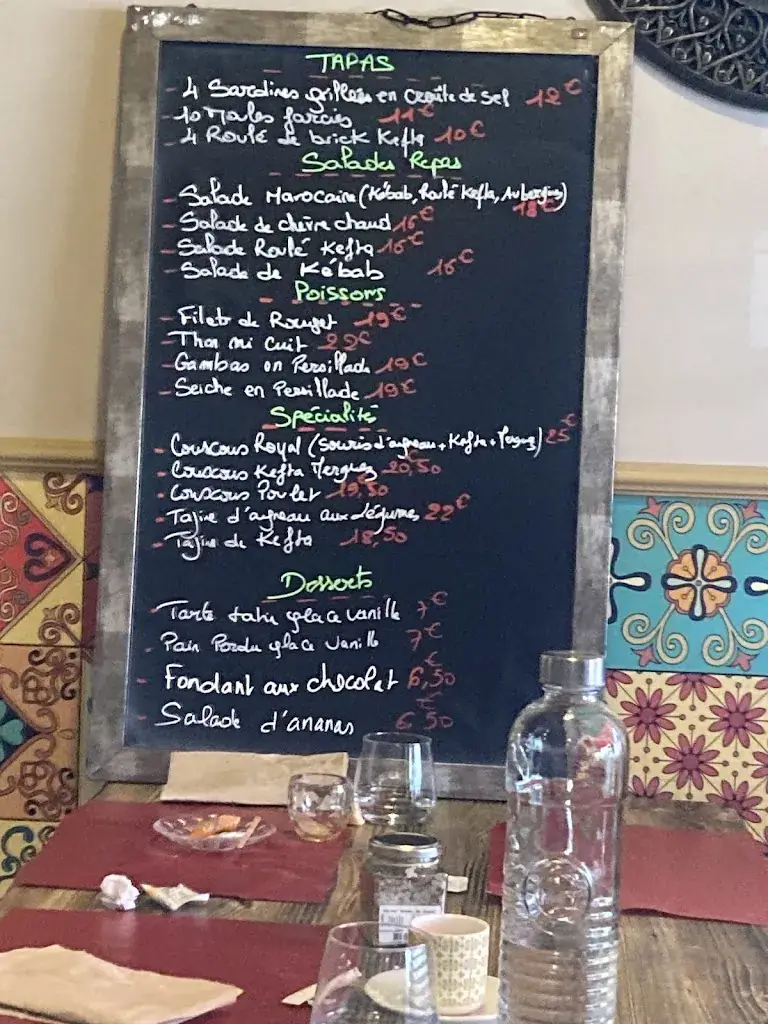 TAPAS
- 4 Sardines grillées en croûte de sel 12€
- 10 Moules farcies 11€
- 4 Roulé de brick Kefta 10€
Salades Repas
- Salade Marocaine (Kébab, Roulé Kefta, Aubergine) 18€
- Salade de chèvre chaud 16€
- Salade Roulé Kefta 16€
- Salade de Kébab 16€
Poissons
- Filets de Rouget 19€
- Thon mi cuit 22€
- Gambas en Persillade 19€
- Seiche en Persillade 19€
Spécialité
- Couscous Royal (Souris d'agneau + Kefta + Merguez) 25€
- Couscous Kefta Merguez 20,50
- Couscous Poulet 19,50
- Tajine d'agneau aux Légumes 22€
- Tajine de Kefta 18,50
Desserts
- Tarte tatin glace vanille 7€
- Pain Perdu glace vanille 7€
- Fondant aux chocolat 6,50€
- Salade d'ananas 6,50€